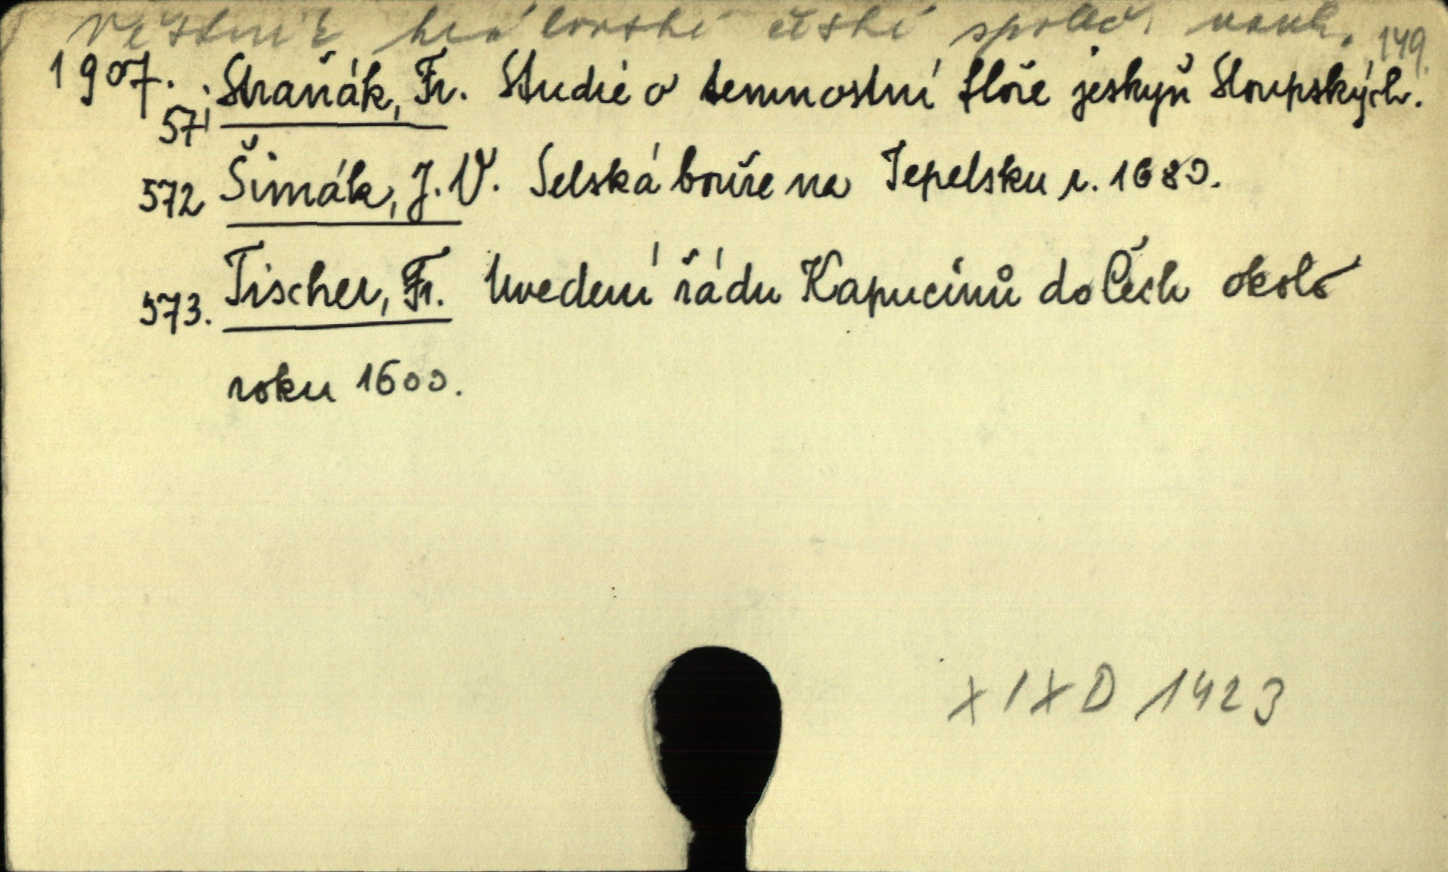 Věstník královské české společ. nauk. 149.
1907. 571 Straňák, Fr. Studie o temnostní flóře jeskyň Sloupských.
572 Šimák, J. V. Selská bouře na Tepelsku r. 1680.
573. Tischer, Fr. Uvedení řádu Kapucínů do Čech okolo
roku 1600.
XIXD 1423